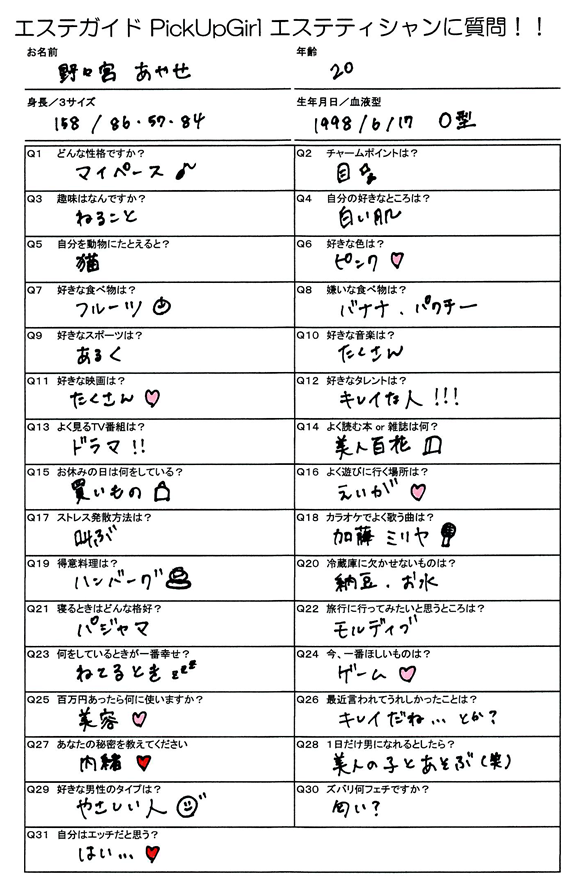 エステガイド PickUpGirl エステティシャンに質問！！
お名前
野々宮 あやせ
年齢
20
身長／3サイズ
158 / 86・57・84
生年月日／血液型
1998 / 6 / 17 O型
Q1 どんな性格ですか？
マイペース
Q2 チャームポイントは？
目
Q3 趣味はなんですか？
ねること
Q4 自分の好きなところは？
白い肌
Q5 自分を動物にたとえると？
猫
Q6 好きな色は？
ピンク
Q7 好きな食べ物は？
フルーツ
Q8 嫌いな食べ物は？
バナナ、パクチー
Q9 好きなスポーツは？
あるく
Q10 好きな音楽は？
たくさん
Q11 好きな映画は？
たくさん
Q12 好きなタレントは？
キレイな人 !!!
Q13 よく見るTV番組は？
ドラマ !!
Q14 よく読む本 or 雑誌は何？
美人百花
Q15 お休みの日は何をしている？
買いもの
Q16 よく遊びに行く場所は？
えいが
Q17 ストレス発散方法は？
叫ぶ
Q18 カラオケでよく歌う曲は？
加藤 ミリヤ
Q19 得意料理は？
ハンバーグ
Q20 冷蔵庫に欠かせないものは？
納豆、お水
Q21 寝るときはどんな格好？
パジャマ
Q22 旅行に行ってみたいと思うところは？
モルディブ
Q23 何をしているときが一番幸せ？
ねてるとき zzz
Q24 今、一番ほしいものは？
ゲーム
Q25 百万円あったら何に使いますか？
美容
Q26 最近言われてうれしかったことは？
キレイだね… とか？
Q27 あなたの秘密を教えてください
内緒
Q28 1日だけ男になれるとしたら？
美人の子とあそぶ（笑）
Q29 好きな男性のタイプは？
やさしい人
Q30 ズバリ何フェチですか？
匂い？
Q31 自分はエッチだと思う？
はい…